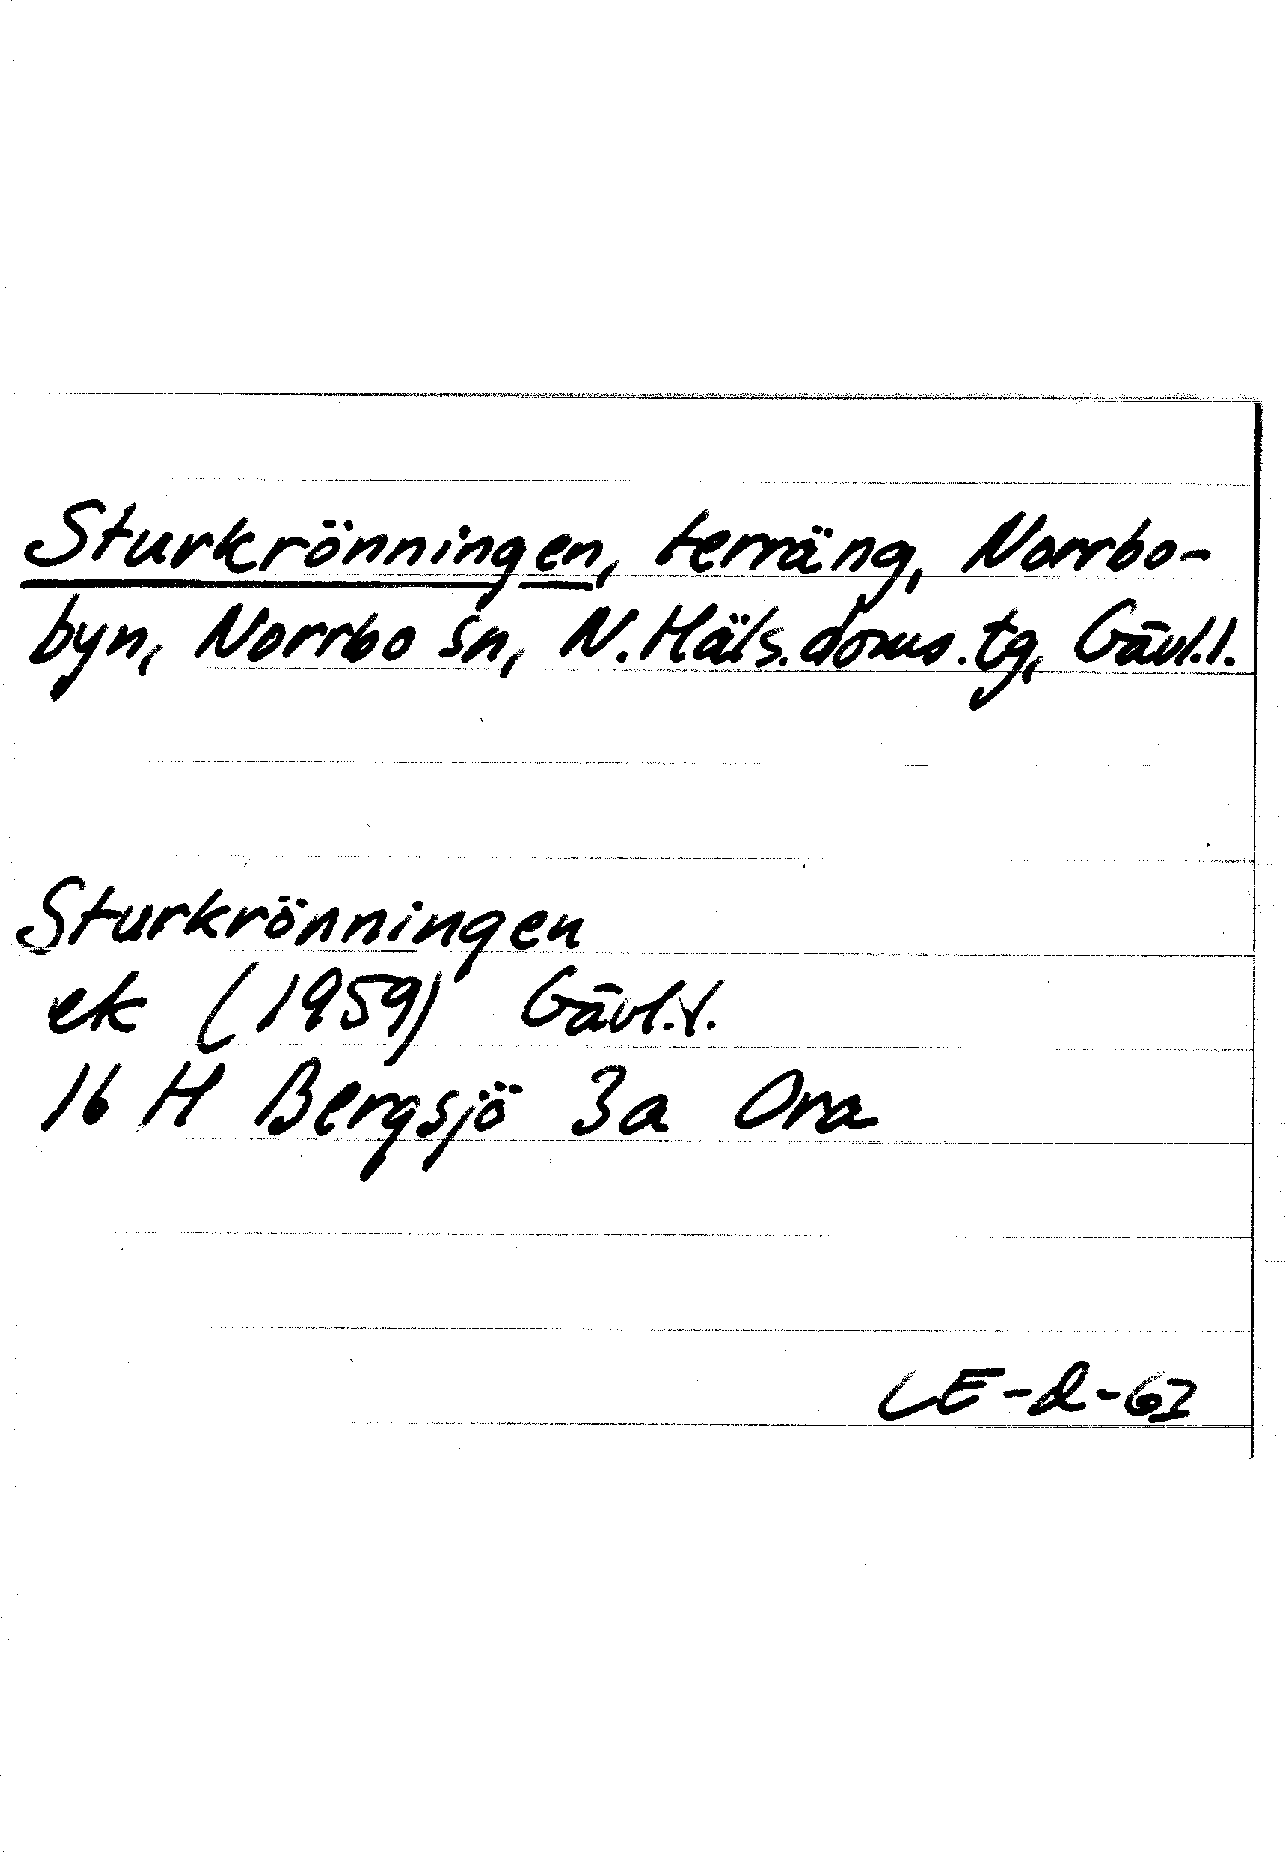 Sturkrönningen, terräng, Norrbo-
byn, Norrbo sn, N.Häls.doms.tg, Gävl.l.
Sturkrönningen
ek (1959) Gävl.l.
16 H Bergsjö 3a Ora